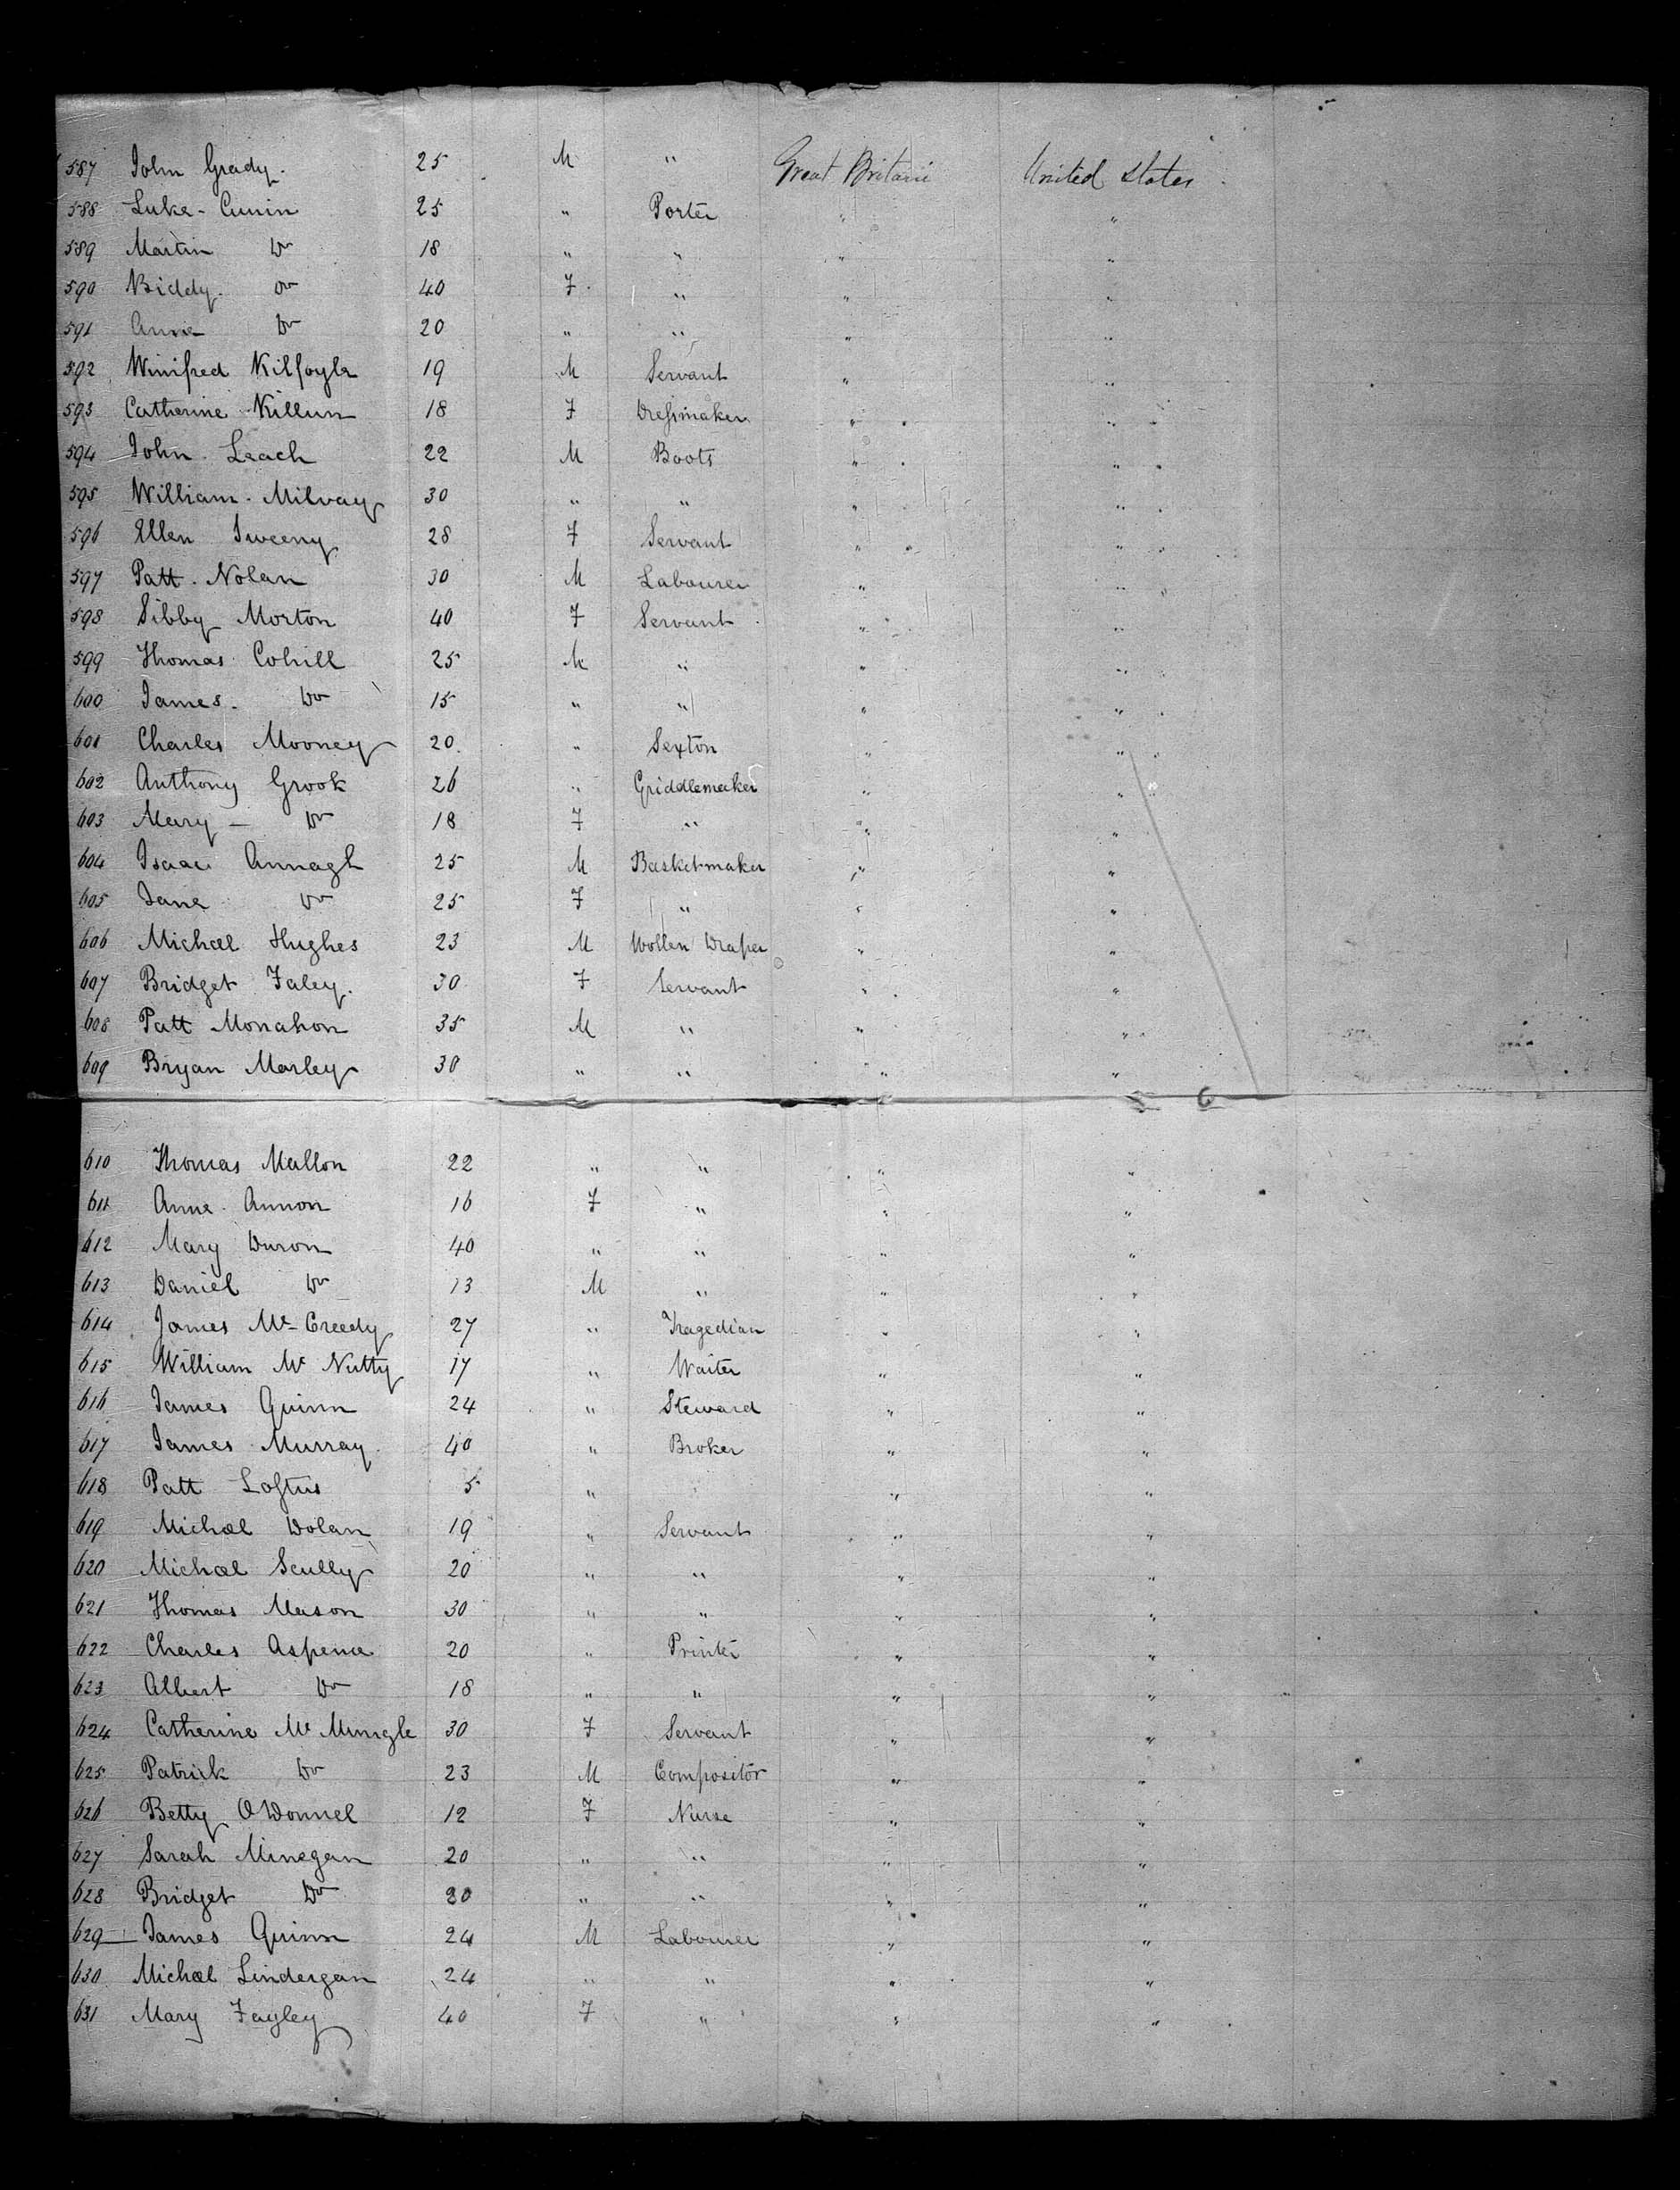 587 John Grady. 25 M " Great Britain United States
588 Luke Cunin 25 " Porter " "
589 Martin Do 18 " " " "
590 Biddy. Do 40 F " " "
591 Anne Do 20 " " " "
592 Winifred Kilfoyle 19 M Servant " "
593 Catherine Killun 18 F Dressmaker " "
594 John Leach 22 M Boots " "
595 William Milvay 30 " " " "
596 Ellen Sweeny 28 F Servant " "
597 Patt. Nolan 30 M Labourer " "
598 Sibby Morton 40 F Servant " "
599 Thomas Cohill 25 M " " "
600 James. Do 15 " " " "
601 Charles Mooney 20 " Sexton " "
602 Anthony Grook 26 " Griddlemaker " "
603 Mary — Do 18 F " " "
604 Isaac Annagh 25 M Basketmaker " "
605 Jane Do 25 F " " "
606 Michael Hughes 23 M Wollen Draper " "
607 Bridget Faley. 30 F Servant " "
608 Patt Monahon 35 M " " "
609 Bryan Marley 30 " " " "
610 Thomas Mallon 22 " " " "
611 Anne Annon 16 F " " "
612 Mary Duron 40 " " " "
613 Daniel Do 13 M " " "
614 James Mc Creedy 27 " Tragedian " "
615 William Mc Nutty 17 " Waiter " "
616 James Quinn 24 " Steward " "
617 James Murray. 40 " Broker " "
618 Patt Loftus 5 " " "
619 Michael Dolan 19 " Servant " "
620 Michael Scully 20 " " " "
621 Thomas Mason 30 " " " "
622 Charles Aspence 20 " Printer " "
623 Albert Do 18 " " " "
624 Catherine Mc Mungle 30 F Servant " "
625 Patrick Do 23 M Compositor " "
626 Betty O'Donnel 12 F Nurse " "
627 Sarah Minegan 20 " " " "
628 Bridget Do 20 " " " "
629 James Quinn 24 M Labourer " "
630 Michael Lindergan 24 " " " "
631 Mary Fayley 40 F " " "